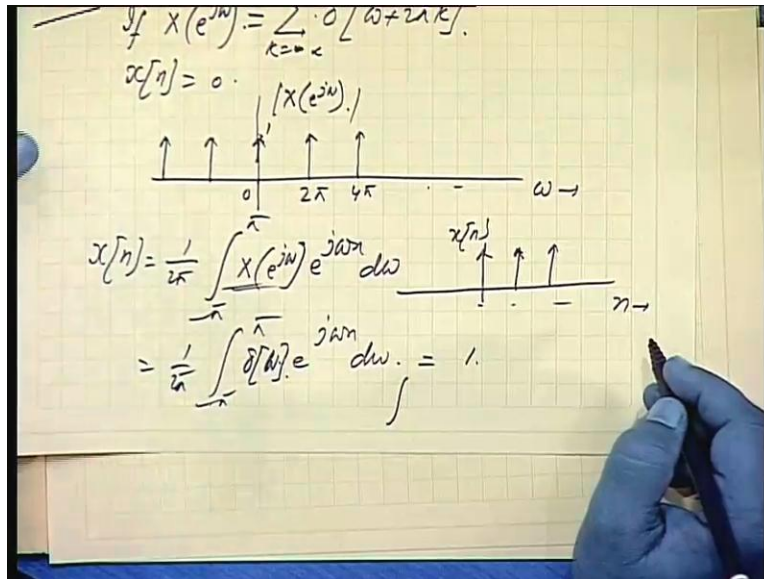 If X(e^{jω}) = Σ_{k=-∞} δ[ω+2πk].
x[n] = 0.
|X(e^{jω})|
1
0 2π 4π . - ω→
x[n] = 1/2π ∫_{-π}^{π} X(e^{jω}) e^{jωn} dω
x[n]
. . - n→
= 1/2π ∫_{-π}^{π} δ[ω] e^{jωn} dω. = 1.
∫